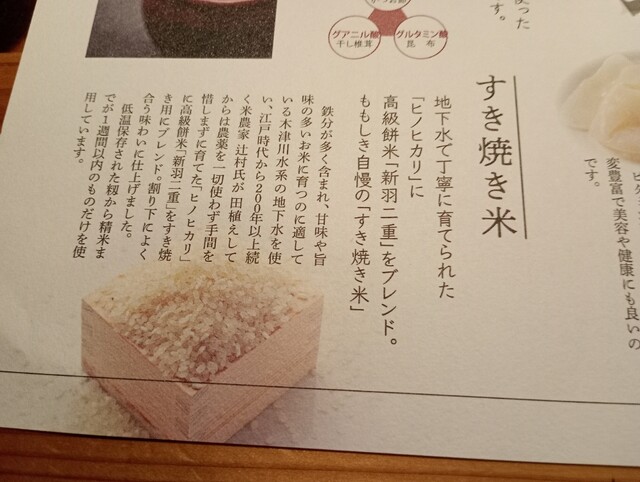 変豊富で美容や健康にも良いの
です。
すき焼き米
地下水で丁寧に育てられた
「ヒノヒカリ」に
高級餅米「新羽二重」をブレンド。
ももしき自慢の「すき焼き米」
鉄分が多く含まれ、甘味や旨
味の多いお米に育つのに適して
いる木津川水系の地下水を使
い、江戸時代から200年以上続
く米農家 辻村氏が田植えして
からは農薬を一切使わず手間を
惜しまずに育てた「ヒノヒカリ」
に高級餅米「新羽二重」をすき焼
き用にブレンド。割り下によく
合う味わいに仕上げました。
低温保存された籾から精米ま
でが1週間以内のものだけを使
用しています。
グアニル酸
干し椎茸
グルタミン酸
昆布
った
す。